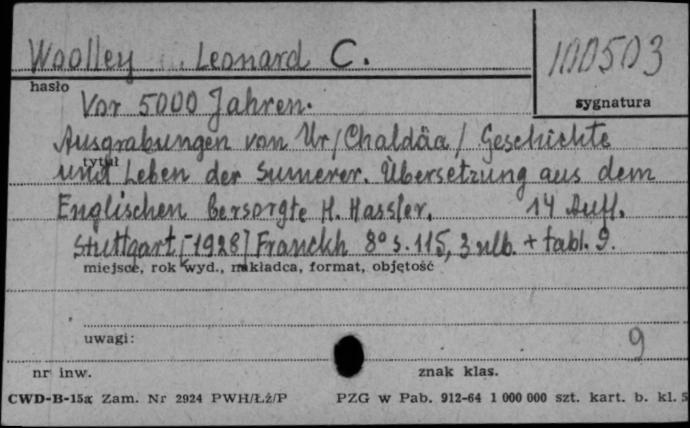 Woolley Leonard C.
100503
hasło
sygnatura
Vor 5000 Jahren.
Ausgrabungen von Ur /Chaldäa/ Geschichte
tytuł
und Leben der Sumerer. Übersetzung aus dem
Englischen besorgte H. Hassler. 14 Aufl.
Stuttgart [1928] Franckh 8° s. 115, 3 nlb. + tabl. 9.
miejsce, rok wyd., nakładca, format, objętość
uwagi:
9
nr inw.
znak klas.
CWD-B-15a Zam. Nr 2924 PWH/Łż/P PZG w Pab. 912-64 1 000 000 szt. kart. b. kl. 5